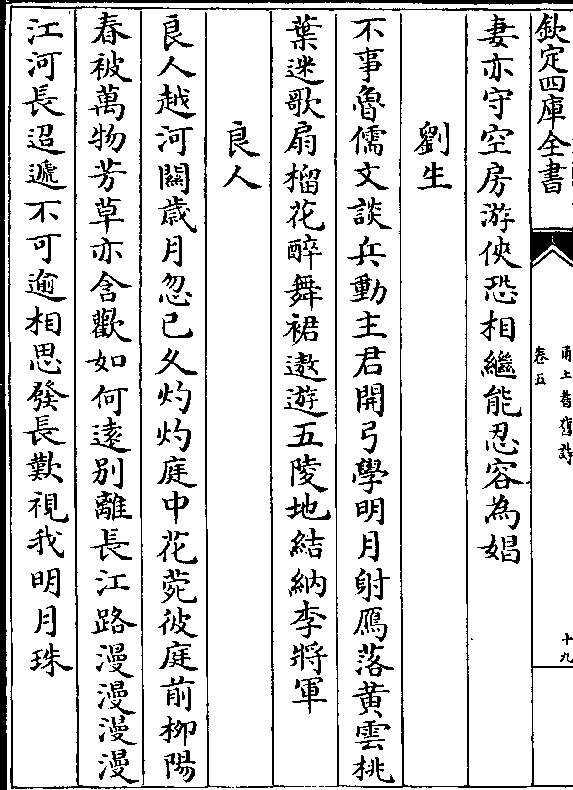 欽定四庫全書
甬上耆舊詩
卷五
十九
妻亦守空房游俠恐相繼能忍容為娼
劉生
不事魯儒文談兵動主君開弓學明月射鴈落黃雲桃
葉迷歌扇榴花醉舞裙遨遊五陵地結納李將軍
良人
良人越河關歳月忽已夂灼灼庭中花菀彼庭前栁陽
春被萬物芳草亦含歡如何逺别離長江路漫漫漫漫
江河長迢遞不可逾相思發長歎視我明月珠